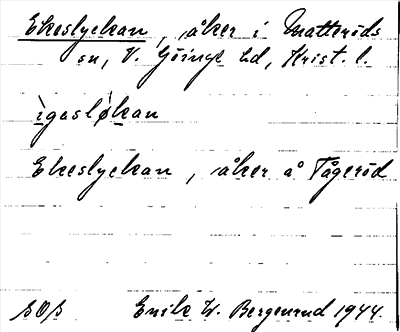 Ekeslyckan, åker i Matteröds
sn, V. Göinge hd, Krist. l.
ìgasløkan
Ekeslyckan, åker å Tågeröd
SOS Emile W. Bergenrud 1944.